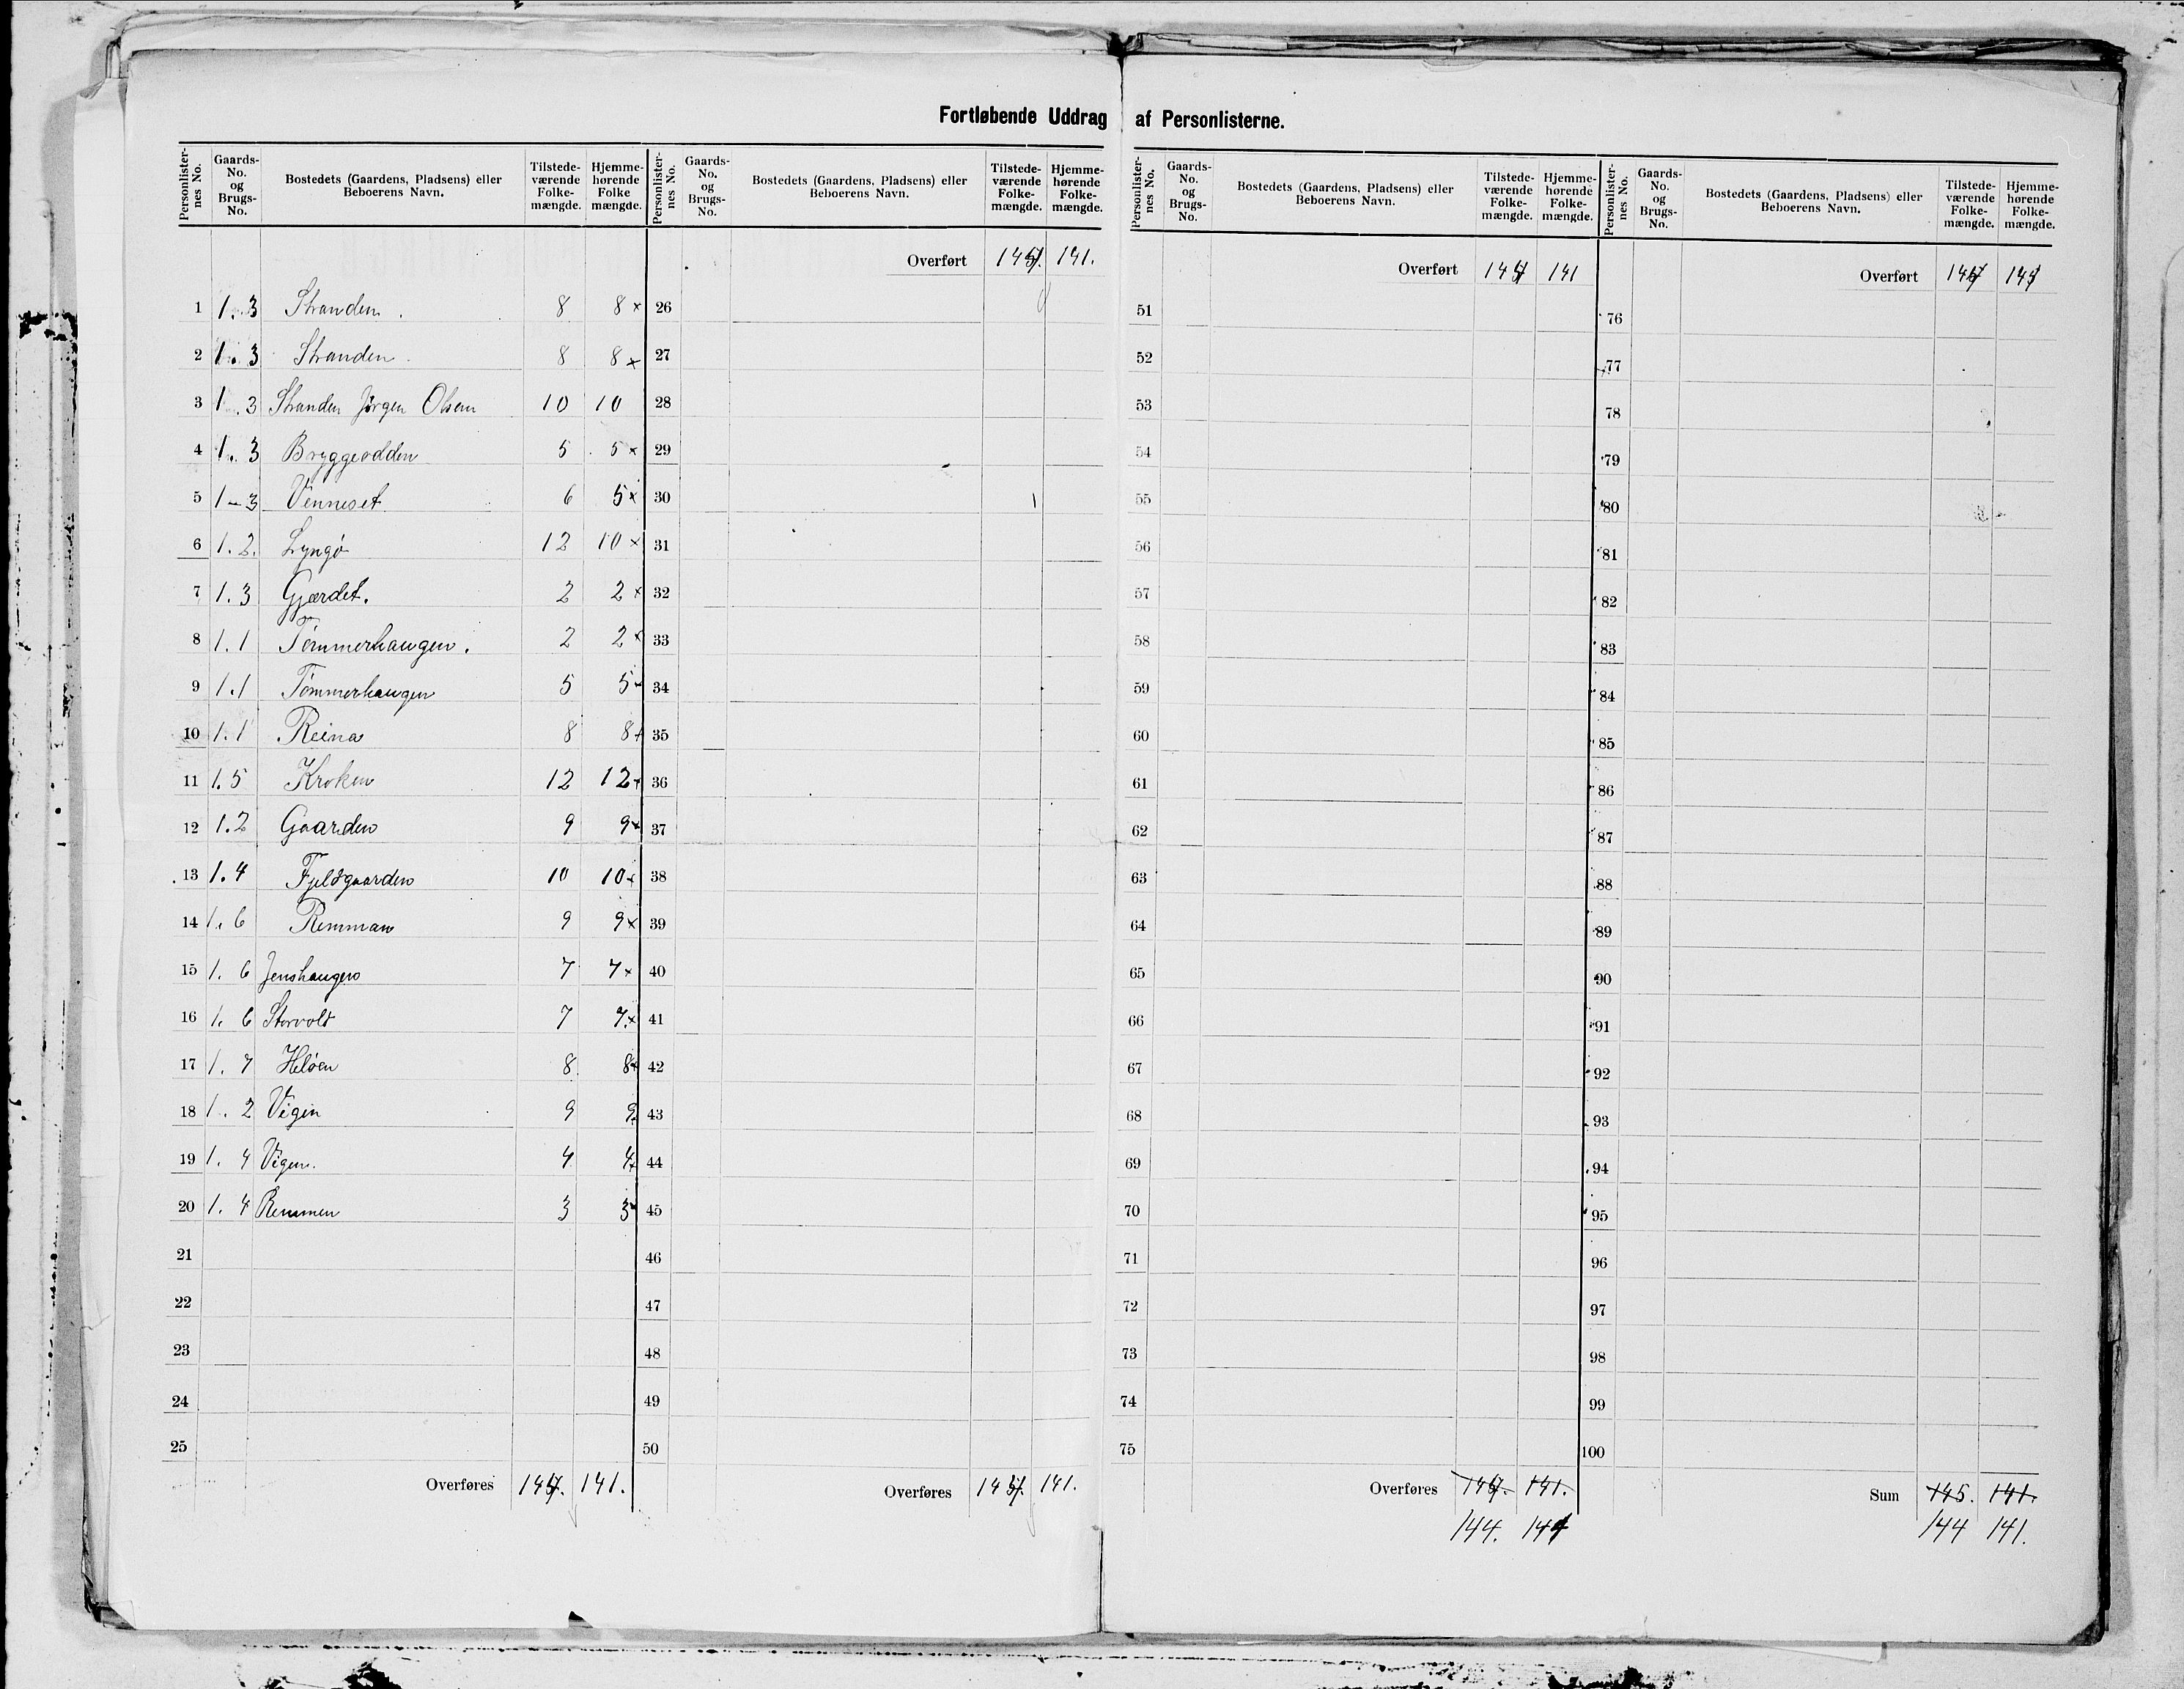 Fortløbende Uddrag af Personlisterne.
Personlister-nes No. | Gaards-No. og Brugs-No. | Bostedets (Gaardens, Pladsens) eller Beboerens Navn. | Tilstede-værende Folke-mængde. | Hjemme-hørende Folke mængde.
1 1. 3 Stranden 8 8 ×
2 1. 3 Stranden 8 8 ×
3 1. 3 Stranden Jørgen Olsen 10 10
4 1. 3 Bryggeodden 5 5 ×
5 1 - 3 Venneset 6 5 ×
6 1. 2. Lyngø 12 10 ×
7 1. 3 Gjærdet. 2 2 ×
8 1. 1 Tømmerhaugen. 2 2 ×
9 1. 1 Tømmerhaugen 5 5 ×
10 1. 1 Reina 8 8 ×
11 1. 5 Kroken 12 12 ×
12 1. 2 Gaarden 9 9 ×
13 1. 4 Fjeldgaarden 10 10 ×
14 1. 6 Remman 9 9 ×
15 1. 6 Jenshaugen 7 7 ×
16 1. 6 Storvold 7 7 ×
17 1. 7 Heløen 8 8 ×
18 1. 2 Vigen 9 9
19 1. 4 Vigen. 4 4 ×
20 1. 4 Remmen 3 3 ×
21
22
23
24
25
Overføres 141.
Personlister-nes No. | Gaards-No. og Brugs-No. | Bostedets (Gaardens, Pladsens) eller Beboerens Navn. | Tilstede-værende Folke-mængde. | Hjemme-hørende Folke-mængde.
Overført 141.
26
27
28
29
30
31
32
33
34
35
36
37
38
39
40
41
42
43
44
45
46
47
48
49
50
Overføres 141.
Personlister-nes No. | Gaards-No. og Brugs-No. | Bostedets (Gaardens, Pladsens) eller Beboerens Navn. | Tilstede-værende Folke-mængde. | Hjemme-hørende Folke-mængde.
Overført 141
51
52
53
54
55
56
57
58
59
60
61
62
63
64
65
66
67
68
69
70
71
72
73
74
75
Overføres 141.
144. 141
Personlister-nes No. | Gaards-No. og Brugs-No. | Bostedets (Gaardens, Pladsens) eller Beboerens Navn. | Tilstede-værende Folke-mængde. | Hjemme-hørende Folke-mængde.
Overført 141
76
77
78
79
80
81
82
83
84
85
86
87
88
89
90
91
92
93
94
95
96
97
98
99
100
Sum 145. 141.
144 141.